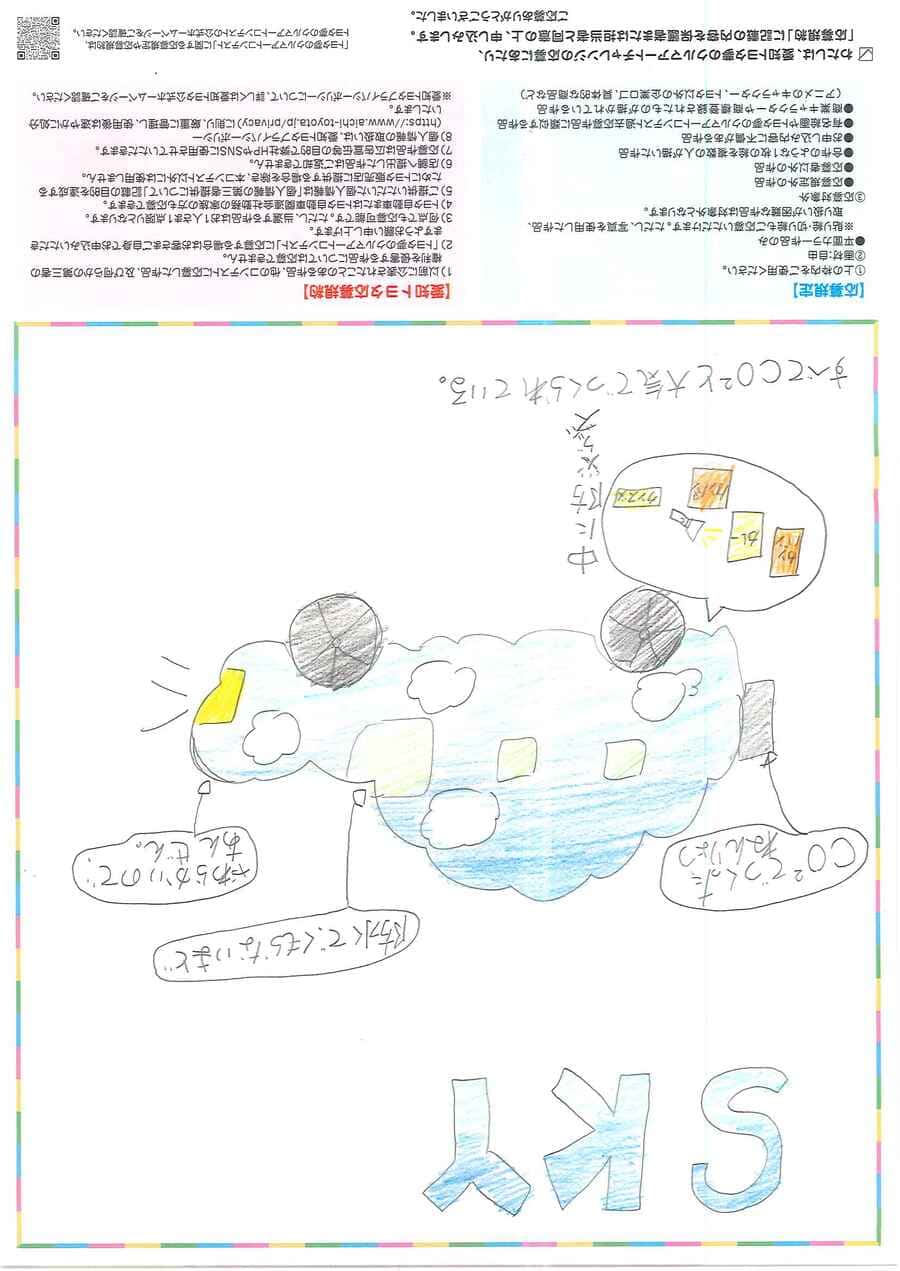 SKY
防水でくもらないまど
CO²でつくった
ねんりょう
やわらかいので、
あんぜん。
中に防災グッズ
カンパン
カレー
カンパン
カンヅメ
すべてCO²と大気でつくられている。
【応募規定】
①上の枠内をご使用ください。
②画材:自由
●平面カラー作品のみ
※貼り絵・切り絵もご応募いただけます。ただし、写真を使用した作品、
取り扱いが困難な作品は対象外となります。
③応募対象外
●応募規定外の作品
●応募者以外の作品
●合作のような1枚の絵を複数の人が描いた作品
●お申し込み内容に不備がある作品
●有名絵画やトヨタ夢のクルマアートコンテスト過去応募作品に類似する作品
●商業キャラクターや商標登録されたものが描かれている作品
(アニメのキャラクター、トヨタ以外の企業ロゴ、具体的な商品など)
【愛知トヨタ応募規約】
1)以前に公表されたことのある作品、他のコンテストに応募した作品、及び何らかの第三者の
権利を侵害する作品については応募できません。
2)「トヨタ夢のクルマアートコンテスト」に応募する場合はお客さまご自身でお申込みいただき
ますようお願い申し上げます。
3)何点でも応募可能です。ただし、当選する作品はお1人さま1点限りとなります。
4)トヨタ自動車またはトヨタ自動車関連会社勤務の家族の方も応募できます。
5)ご提供いただいた個人情報は「個人情報の第三者提供について」記載の目的を達成する
ためにトヨタ販売店に提供する場合を除き、本コンテスト以外には使用しません。
6)店舗へ提出した作品はご返却できません。
7)応募作品は広告宣伝等の目的で弊社HPやSNSに使用させていただきます。
8)個人情報の取扱いは、愛知トヨタプライバシーポリシー
(https://www.aichi-toyota.jp/privacy)に則り、厳重に管理し、使用後は速やかに処分
いたします。
※愛知トヨタプライバシーポリシーについて、詳しくは愛知トヨタ公式ホームページをご確認ください。
わたしは、愛知トヨタの夢のクルマアートチャレンジの応募にあたり、
「応募規約」に記載の内容を保護者または担当者と同意の上、申し込みします。
ご応募ありがとうございました。
「トヨタ夢のクルマアートコンテスト」に関する応募規定や応募規約は、
トヨタ夢のクルマアートコンテストの公式ホームページをご確認ください。